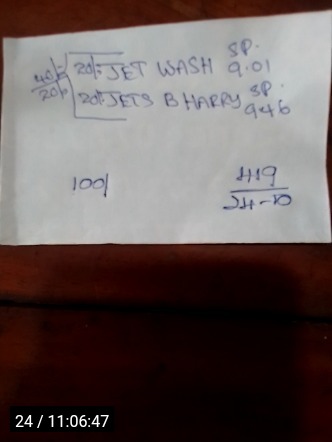 SP.
20/- JET WASH 9.01
40/-
20/-
SP.
20/- JETS B HARRY 946
100/
419
24-10
24 / 11:06:47